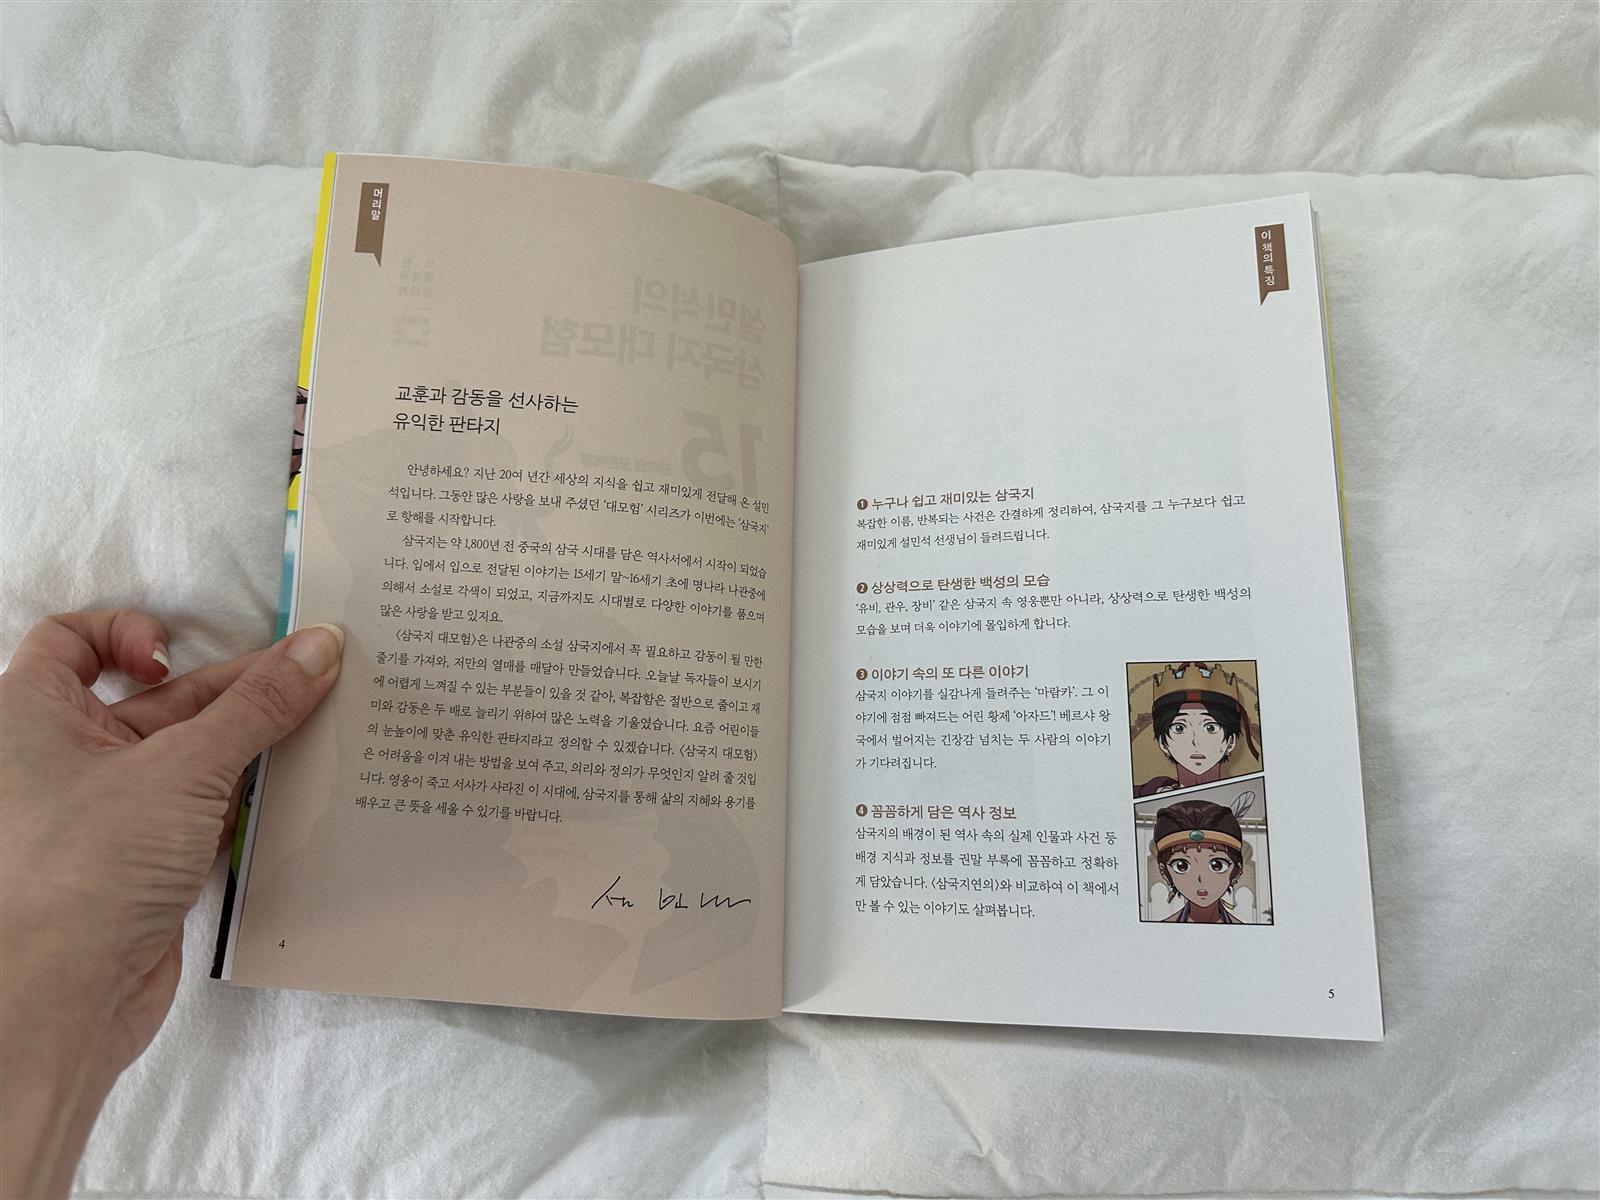 머리말
교훈과 감동을 선사하는
유익한 판타지
안녕하세요? 지난 20여 년간 세상의 지식을 쉽고 재미있게 전달해 온 설민
석입니다. 그동안 많은 사랑을 보내 주셨던 ‘대모험’ 시리즈가 이번에는 ‘삼국지’
로 항해를 시작합니다.
삼국지는 약 1,800년 전 중국의 삼국 시대를 담은 역사서에서 시작이 되었습
니다. 입에서 입으로 전달된 이야기는 15세기 말~16세기 초에 명나라 나관중에
의해서 소설로 각색이 되었고, 지금까지도 시대별로 다양한 이야기를 품으며
많은 사랑을 받고 있지요.
〈삼국지 대모험〉은 나관중의 소설 삼국지에서 꼭 필요하고 감동이 될 만한
줄기를 가져와, 저만의 열매를 매달아 만들었습니다. 오늘날 독자들이 보시기
에 어렵게 느껴질 수 있는 부분들이 있을 것 같아, 복잡함은 절반으로 줄이고 재
미와 감동은 두 배로 늘리기 위하여 많은 노력을 기울였습니다. 요즘 어린이들
의 눈높이에 맞춘 유익한 판타지라고 정의할 수 있겠습니다. 〈삼국지 대모험〉
은 어려움을 이겨 내는 방법을 보여 주고, 의리와 정의가 무엇인지 알려 줄 것입
니다. 영웅이 죽고 서사가 사라진 이 시대에, 삼국지를 통해 삶의 지혜와 용기를
배우고 큰 뜻을 세울 수 있기를 바랍니다.
4
이 책의 특징
❶ 누구나 쉽고 재미있는 삼국지
복잡한 이름, 반복되는 사건은 간결하게 정리하여, 삼국지를 그 누구보다 쉽고
재미있게 설민석 선생님이 들려드립니다.
❷ 상상력으로 탄생한 백성의 모습
‘유비, 관우, 장비’ 같은 삼국지 속 영웅뿐만 아니라, 상상력으로 탄생한 백성의
모습을 보며 더욱 이야기에 몰입하게 합니다.
❸ 이야기 속의 또 다른 이야기
삼국지 이야기를 실감나게 들려주는 ‘마람카’. 그 이
야기에 점점 빠져드는 어린 황제 ‘아자드’! 베르샤 왕
국에서 벌어지는 긴장감 넘치는 두 사람의 이야기
가 기다려집니다.
❹ 꼼꼼하게 담은 역사 정보
삼국지의 배경이 된 역사 속의 실제 인물과 사건 등
배경 지식과 정보를 권말 부록에 꼼꼼하고 정확하
게 담았습니다. 〈삼국지연의〉와 비교하여 이 책에서
만 볼 수 있는 이야기도 살펴봅니다.
5